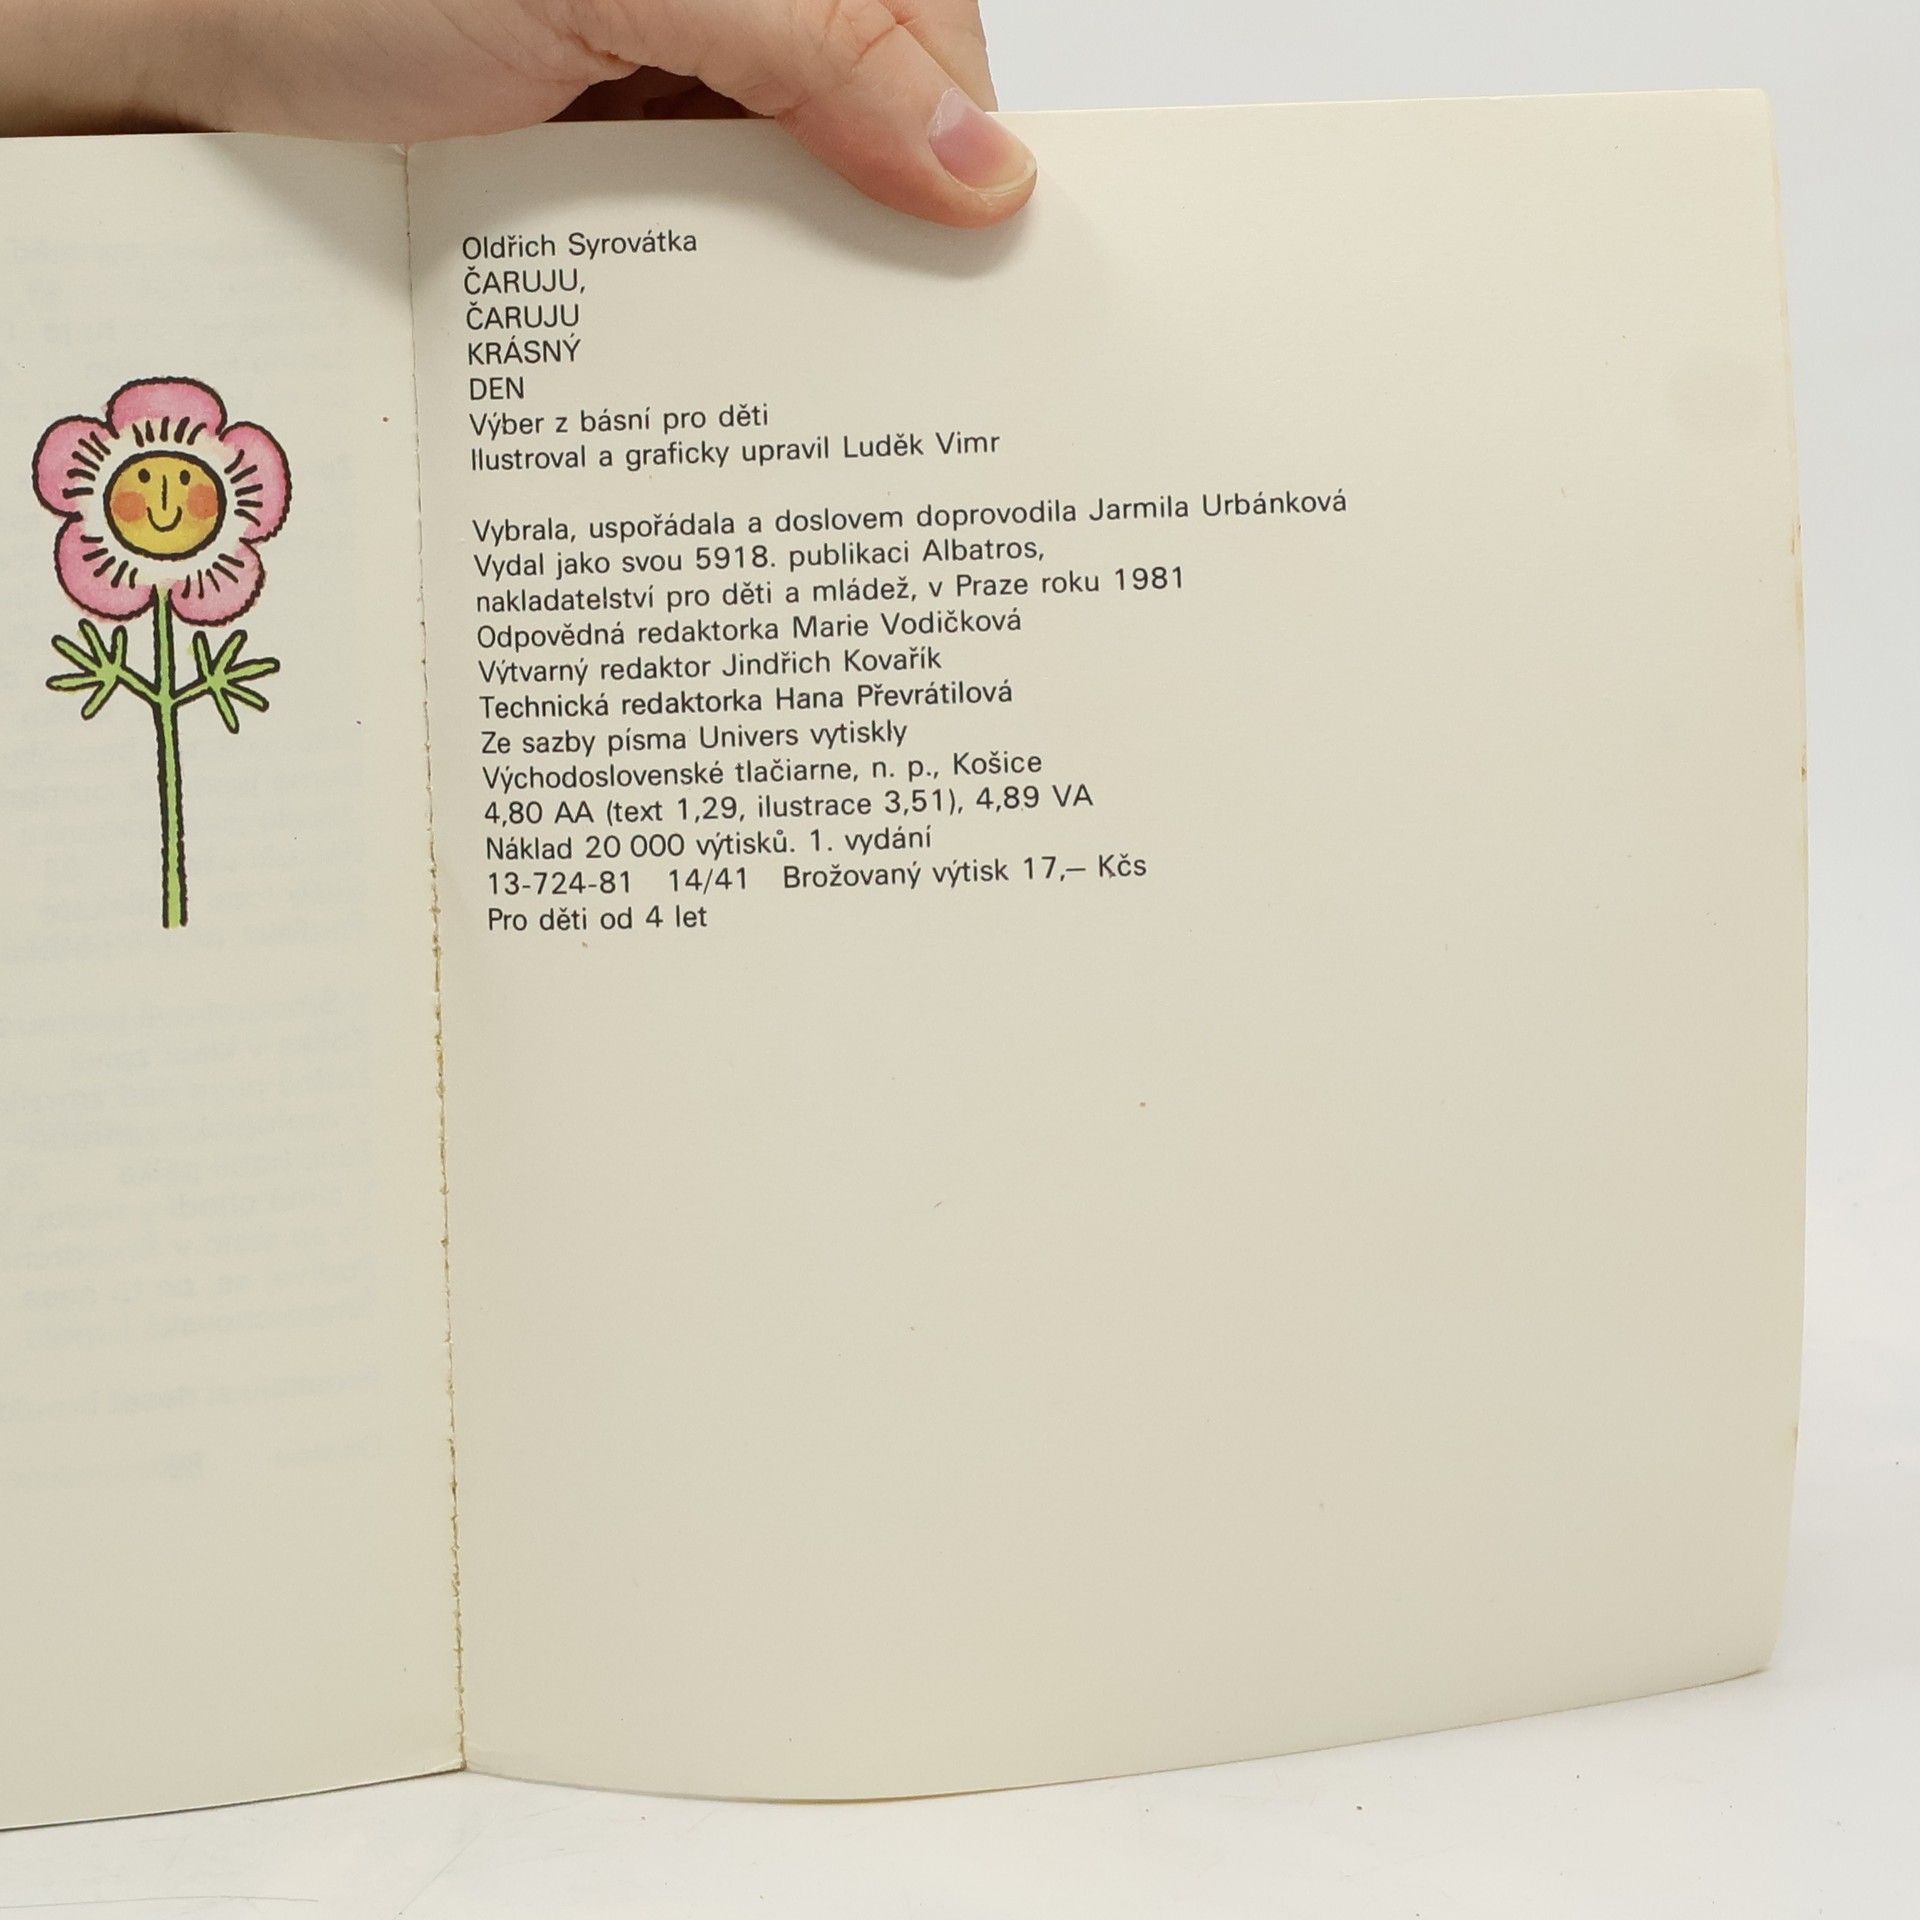 Oldřich Syrovátka
ČARUJU,
ČARUJU
KRÁSNÝ
DEN
Výber z básní pro děti
Ilustroval a graficky upravil Luděk Vimr
Vybrala, uspořádala a doslovem doprovodila Jarmila Urbánková
Vydal jako svou 5918. publikaci Albatros,
nakladatelství pro děti a mládež, v Praze roku 1981
Odpovědná redaktorka Marie Vodičková
Výtvarný redaktor Jindřich Kovařík
Technická redaktorka Hana Převrátilová
Ze sazby písma Univers vytiskly
Východoslovenské tlačiarne, n. p., Košice
4,80 AA (text 1,29, ilustrace 3,51), 4,89 VA
Náklad 20 000 výtisků. 1. vydání
13-724-81 14/41 Brožovaný výtisk 17,– Kčs
Pro děti od 4 let